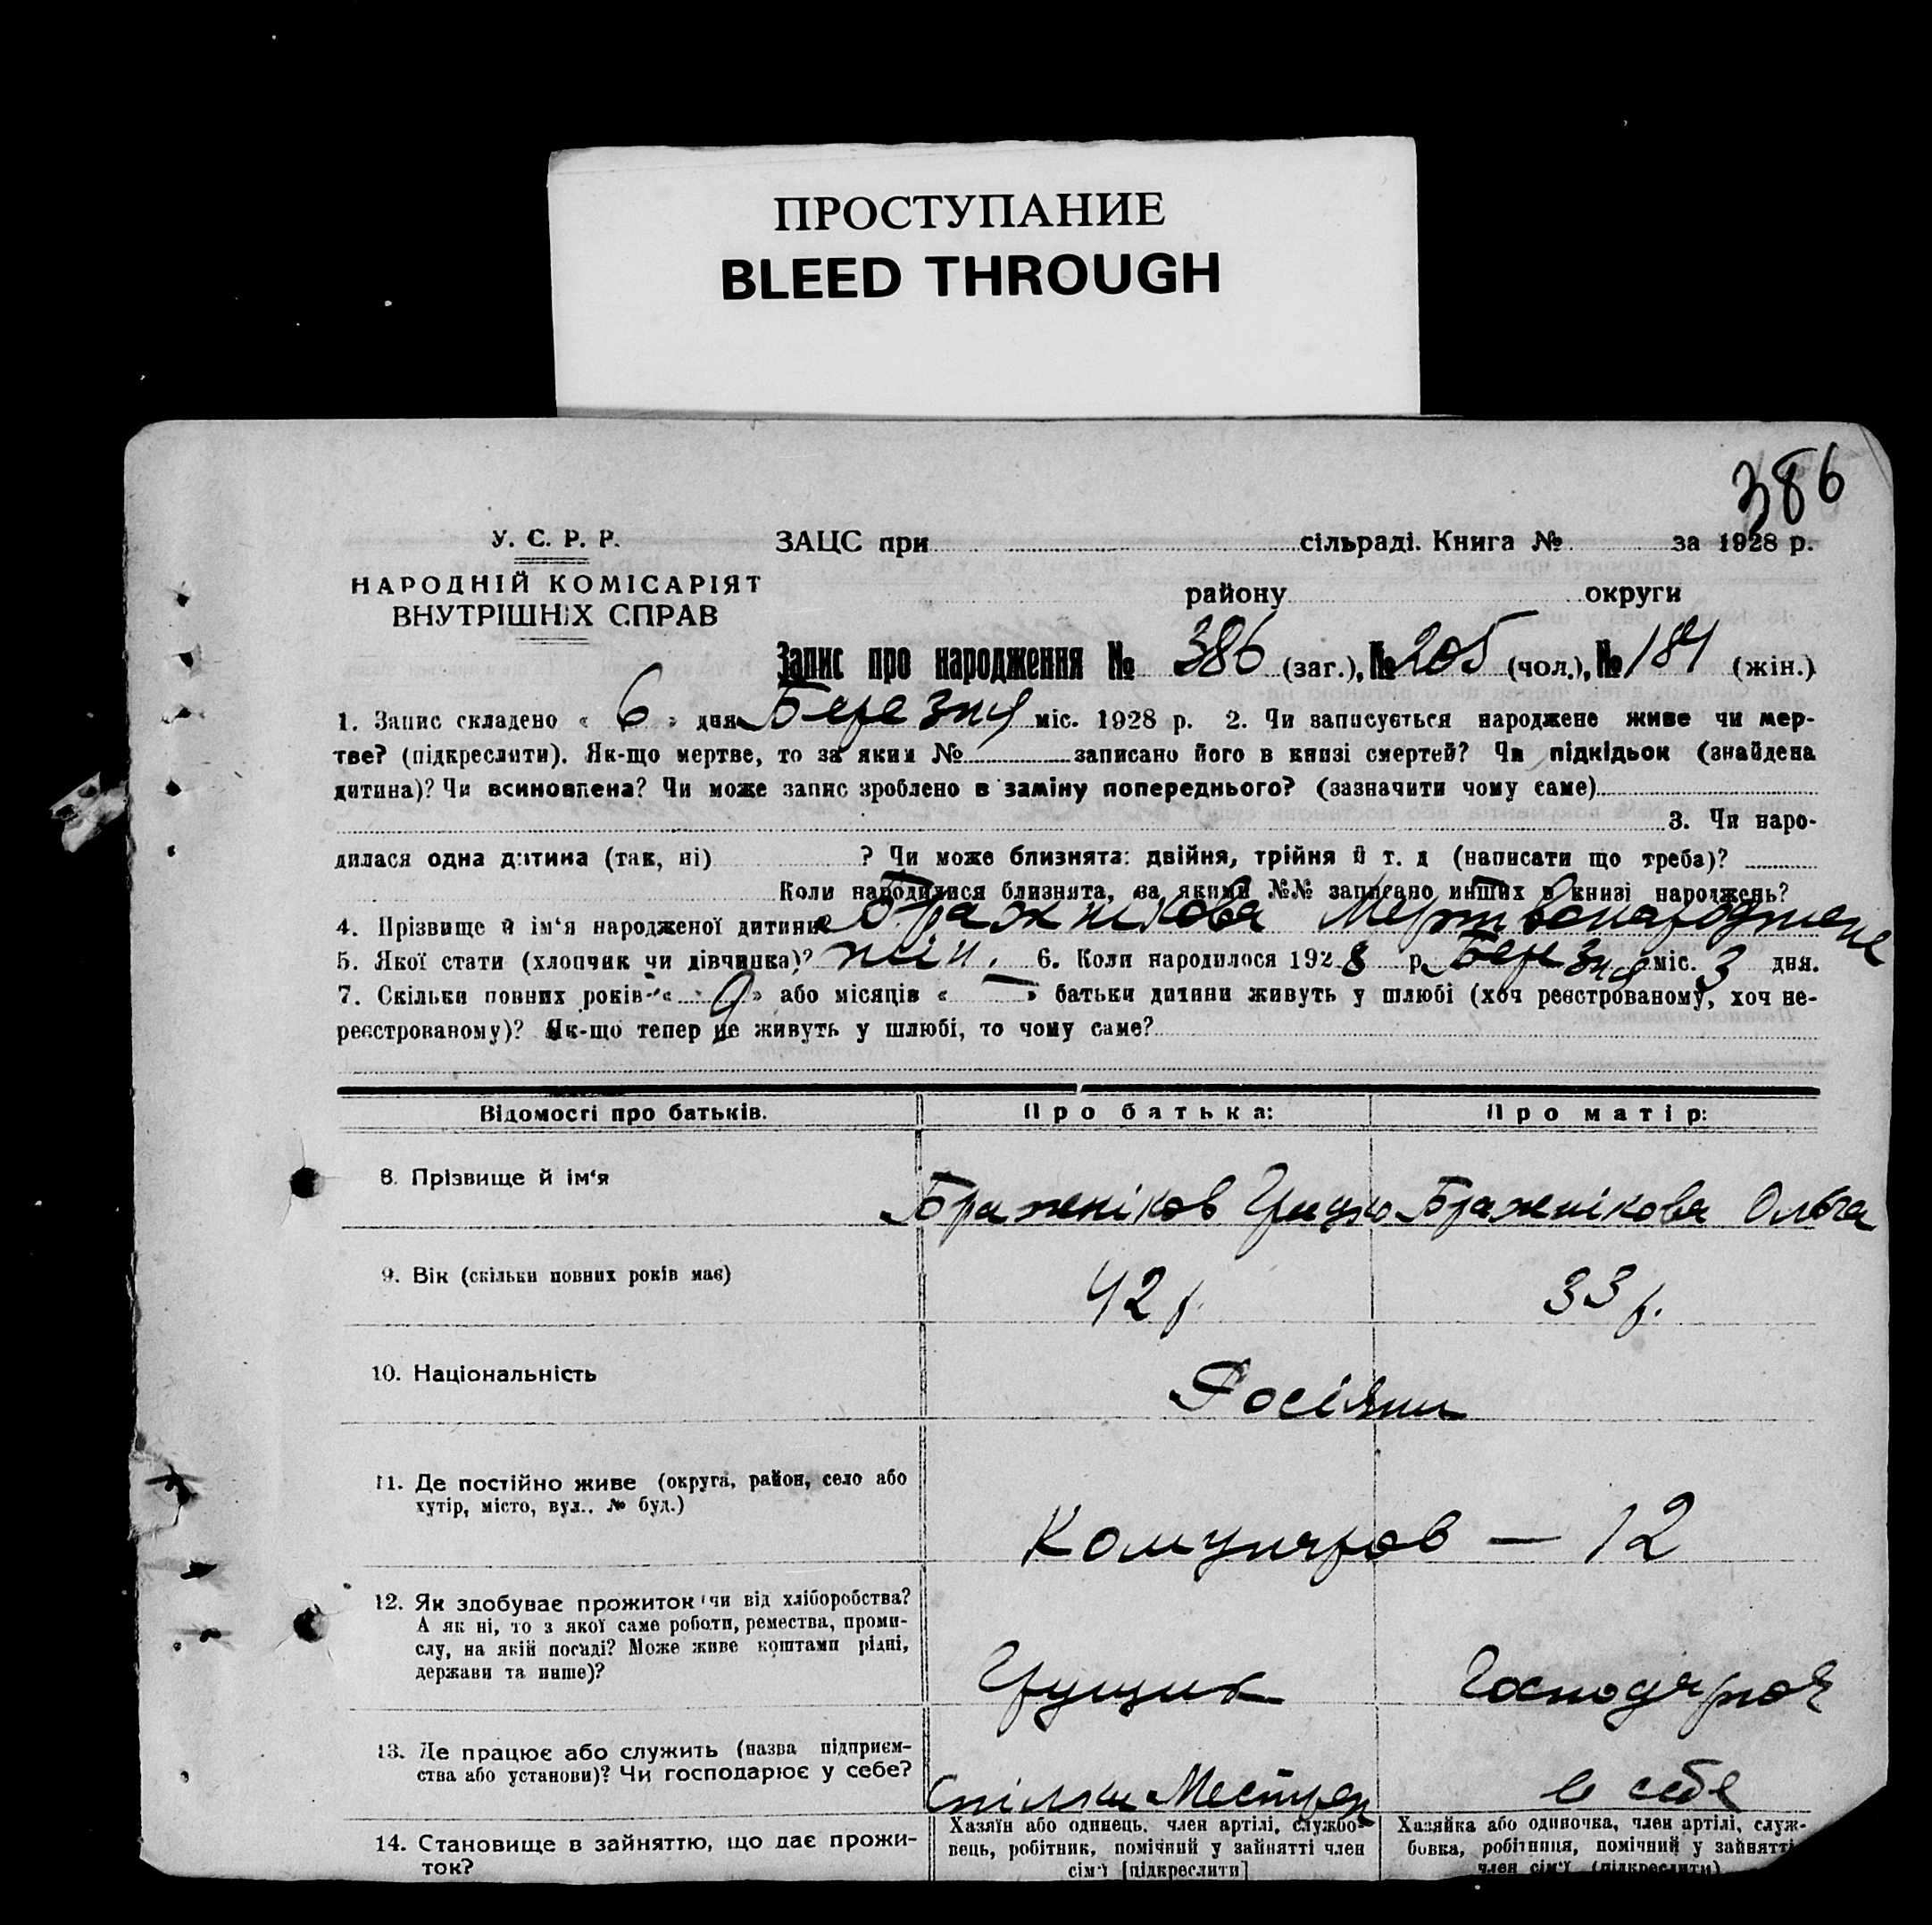 ПРОСТУПАНИЕ
BLEED THROUGH
386
У. С. Р. Р.
НАРОДНІЙ КОМІСАРІЯТ
ВНУТРІШНІХ СПРАВ
ЗАЦС при сільраді. Книга № за 1928 р.
району округи
Запис про народження № 386 (заг.), № 205 (чол.), № 181 (жін.)
1. Запис складено « 6 » дня Березня міс. 1928 р. 2. Чи записується народжене живе чи мер-
тве? (підкреслити). Як-що мертве, то за яким № записано його в книзі смертей? Чи підкідьок (знайдена
дитина)? Чи всиновлена? Чи може запис зроблено в заміну попереднього? (зазначити чому саме)
3. Чи наро-
дилася одна дитина (так, ні) ? Чи може близнята: двійня, трійня й т. д (написати що треба)?
Коли народилися близнята, за якими №№ записано инших в книзі народжень?
4. Прізвище й ім‘я народженої дитини Бражнікова Мертвонароджене
5. Якої стати (хлопчик чи дівчинка)? 6. Коли народилося 1928 р. Березня міс. 3 дня.
7. Скільки повних років « 9 » або місяців « — » батьки дитини живуть у шлюбі (хоч реєстрованому, хоч не-
реєстрованому)? Як-що тепер не живуть у шлюбі, то чому саме?
Відомості про батьків.
Про батька:
Про матір:
8. Прізвище й ім‘я
Бражніков
Бражнікова Ольга
9. Вік (скільки повних років має)
42 р.
33 р.
10. Національність
Росіяни
11. Де постійно живе (округа, район, село або
хутір, місто, вул.. № буд.)
Комунарів — 12
12. Як здобуває прожиток чи від хліборобства?
А як ні, то з якої саме роботи, ремества, проми-
слу, на якій посаді? Може живе коштами рідні,
держави та инше)?
13. Де працює або служить (назва підприєм-
ства або установи)? Чи господарює у себе?
Спілки
в себе
14. Становище в зайняттю, що дає прожи-
ток?
Хазяїн або одинець, член артілі, службо-
вець, робітник, помічний у зайнятті член
сім‘ї [підкреслити]
Хазяйка або одиночка, член артілі, служ-
бовка, робітниця, помічний у зайнятті
член сім‘ї (підкреслити)